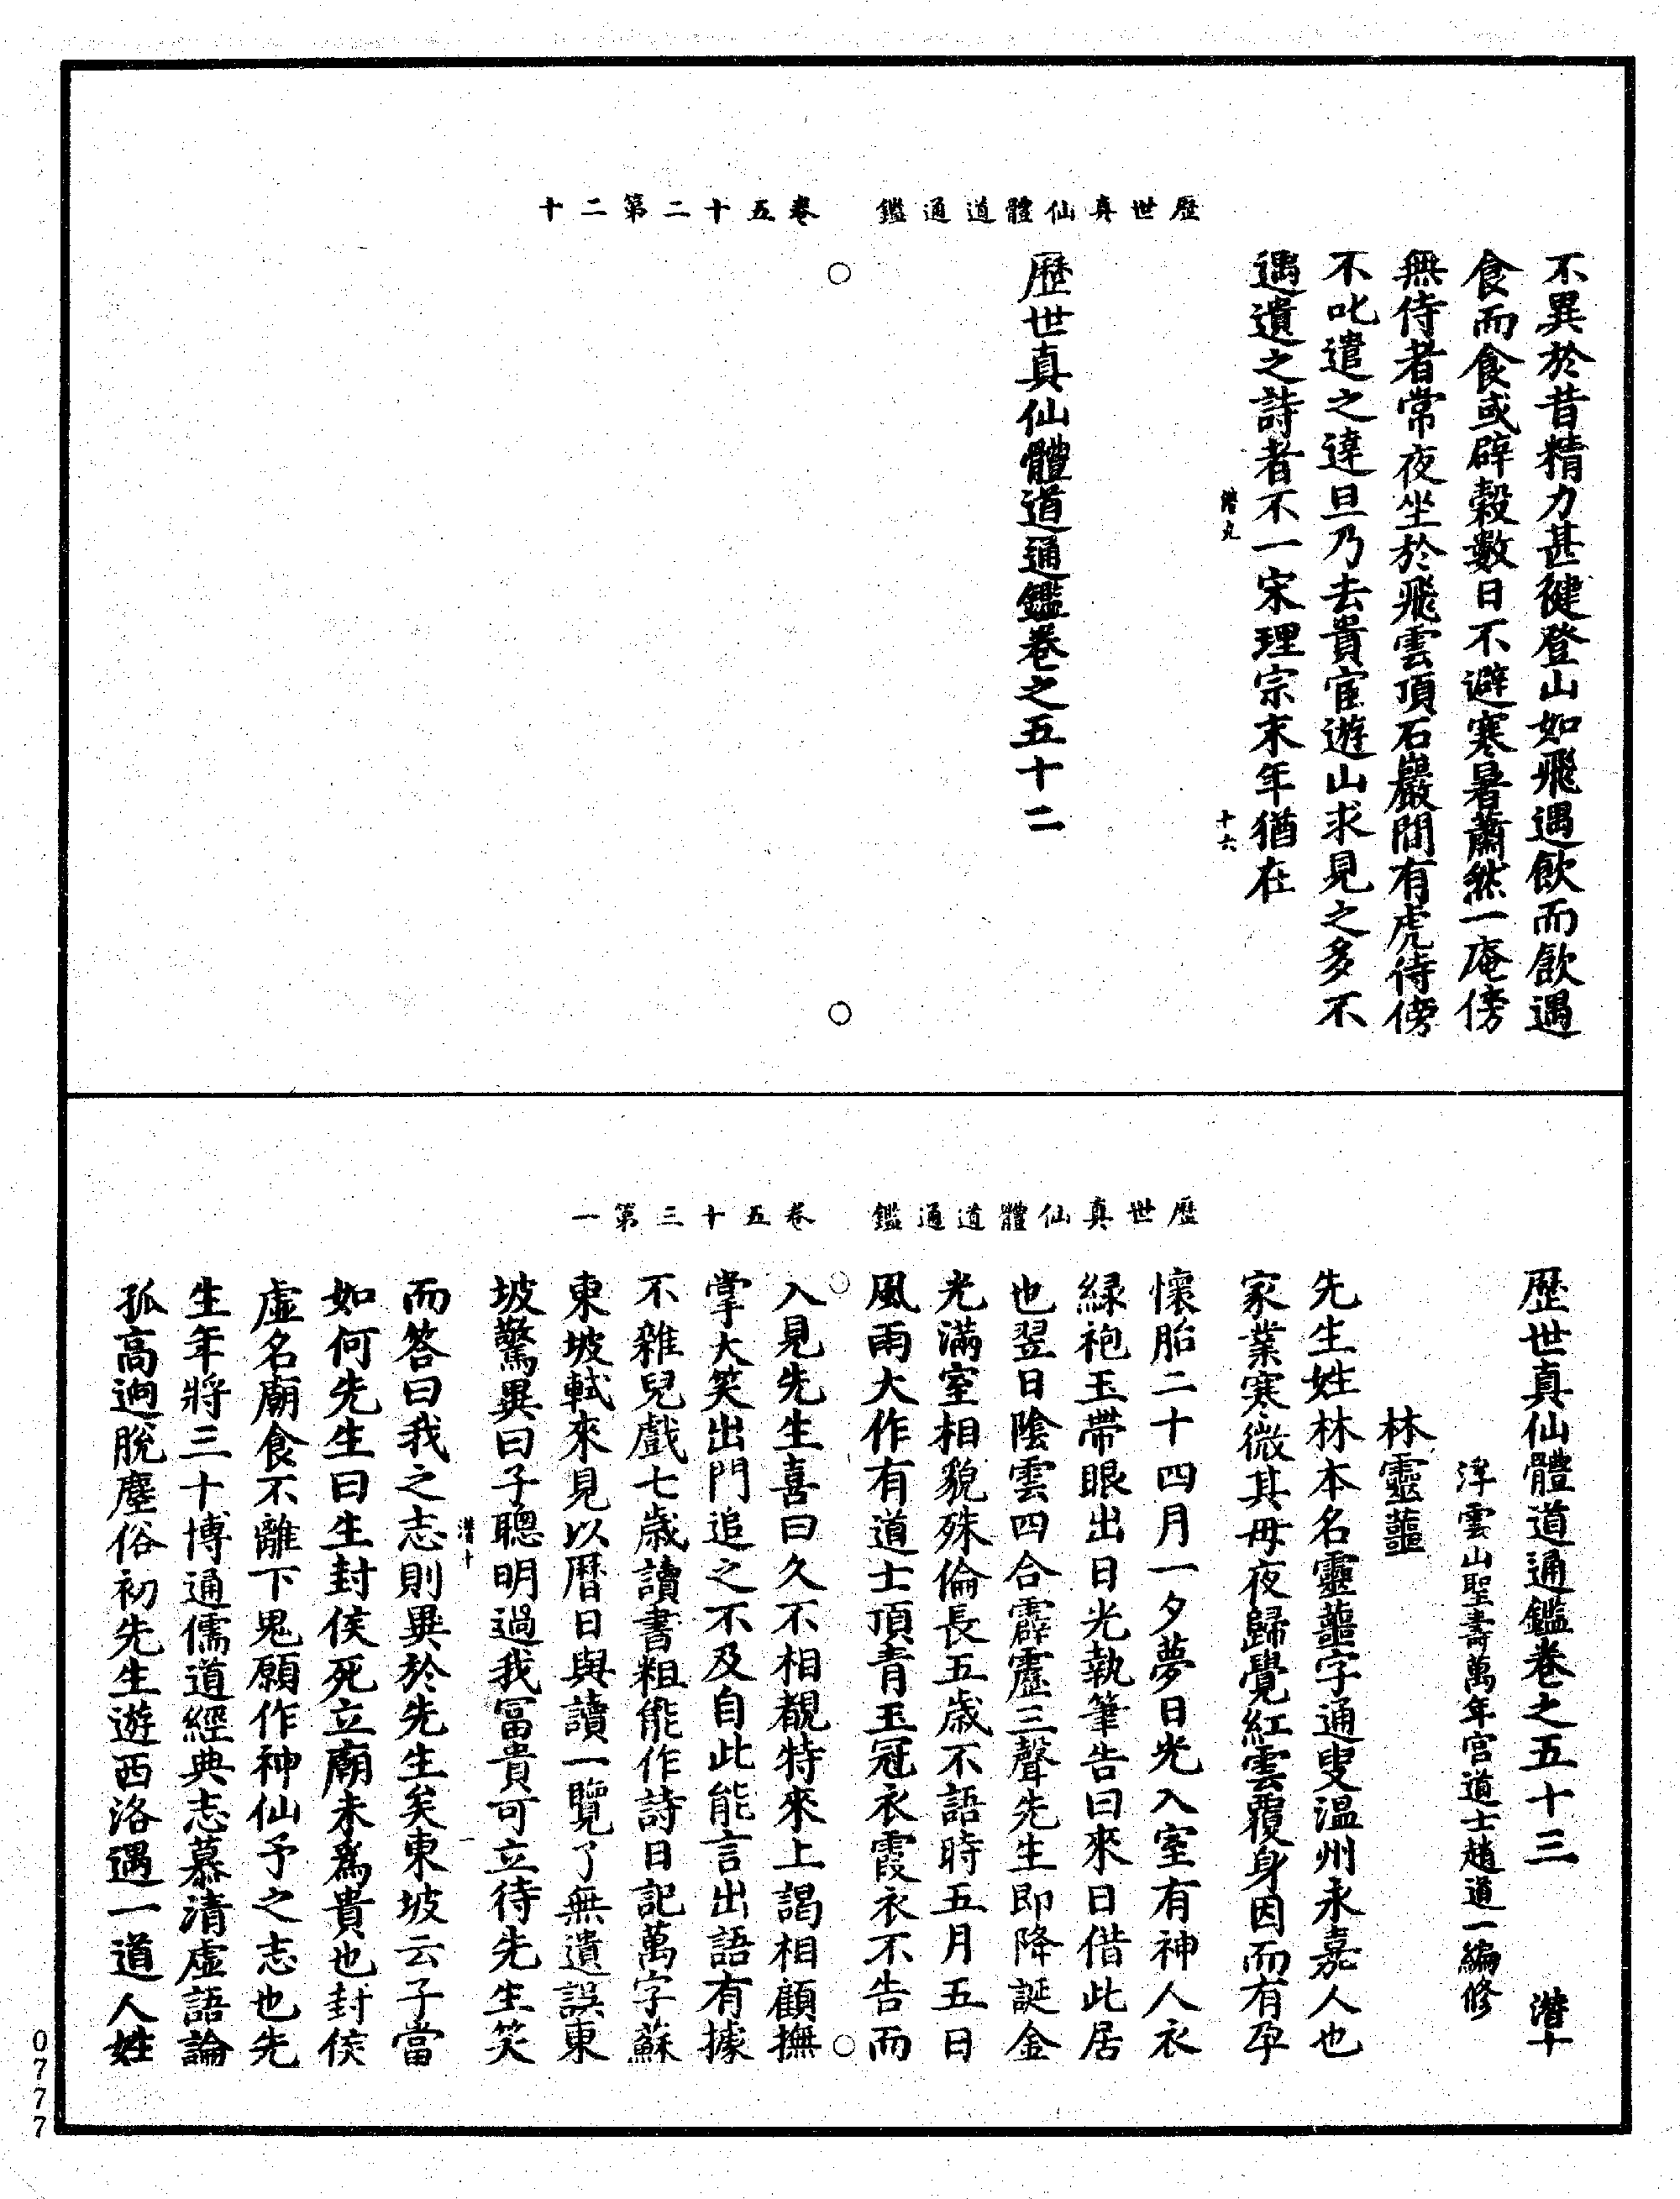 歷世真仙體道通鑑　卷五十二第二十
不異於昔精力甚健登山如飛遇飲而飲遇
食而食或辟穀數日不避寒暑蕭然一庵傍
無侍者常夜坐於飛雲頂石巖間有虎侍傍
不叱遣之達旦乃去貴宦遊山求見之多不
遇遺之詩者不一宋理宗末年猶在
潛九　十六
歷世真仙體道通鑑卷之五十二
歷世真仙體道通鑑　卷五十三第一
歷世真仙體道通鑑卷之五十三　潛十
浮雲山聖壽萬年宮道士趙道一編修
林靈蘁
先生姓林本名靈蘁字通叟溫州永嘉人也
家業寒微其母夜歸覺紅雲覆身因而有孕
懷胎二十四月一夕夢日光入室有神人衣
綠袍玉帶眼出日光執筆告曰來日借此居
也翌日陰雲四合霹靂三聲先生即降誕金
光滿室相貌殊倫長五歲不語時五月五日
風雨大作有道士頂青玉冠衣霞衣不告而
入見先生喜曰久不相覩特來上謁相顧撫
掌大笑出門追之不及自此能言出語有據
不雜兒戲七歲讀書粗能作詩日記萬字蘇
東坡軾來見以曆日與讀一覽了無遺誤東
坡驚異曰子聰明過我富貴可立待先生笑
潛十
而答曰我之志則異於先生矣東坡云子當
如何先生曰生封侯死立廟未爲貴也封侯
虛名廟食不離下鬼願作神仙予之志也先
生年將三十博通儒道經典志慕清虛語論
孤高逈脫塵俗初先生遊西洛遇一道人姓
0777